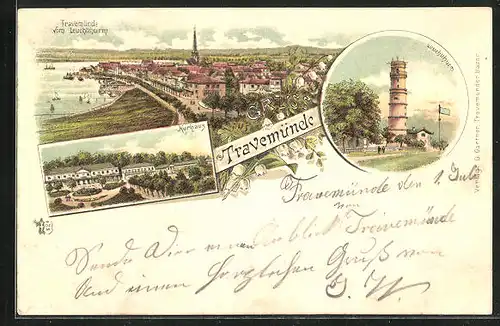 Travemünde
vom Leuchtthurm
Leuchtthurm
Kurhaus
GRUSS
AUS
Travemünde
Verlag G. Gaertner, Travemünder Bazar
Travemünde den 1. Juli
Sende Dir einen Anblick von Travemünde
Und einen herzlichen Gruß von